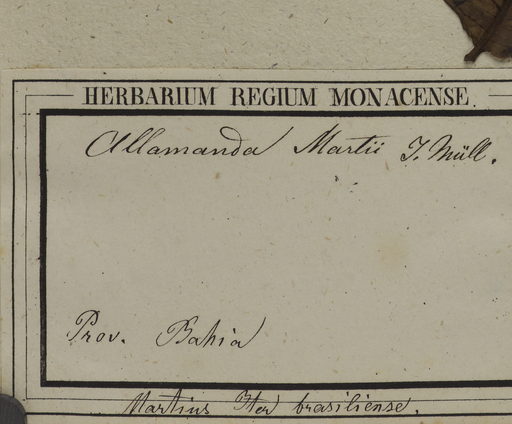 HERBARIUM REGIUM MONACENSE.
Allamanda Martii J. Müll.
Prov. Bahia
Martius Iter brasiliense.